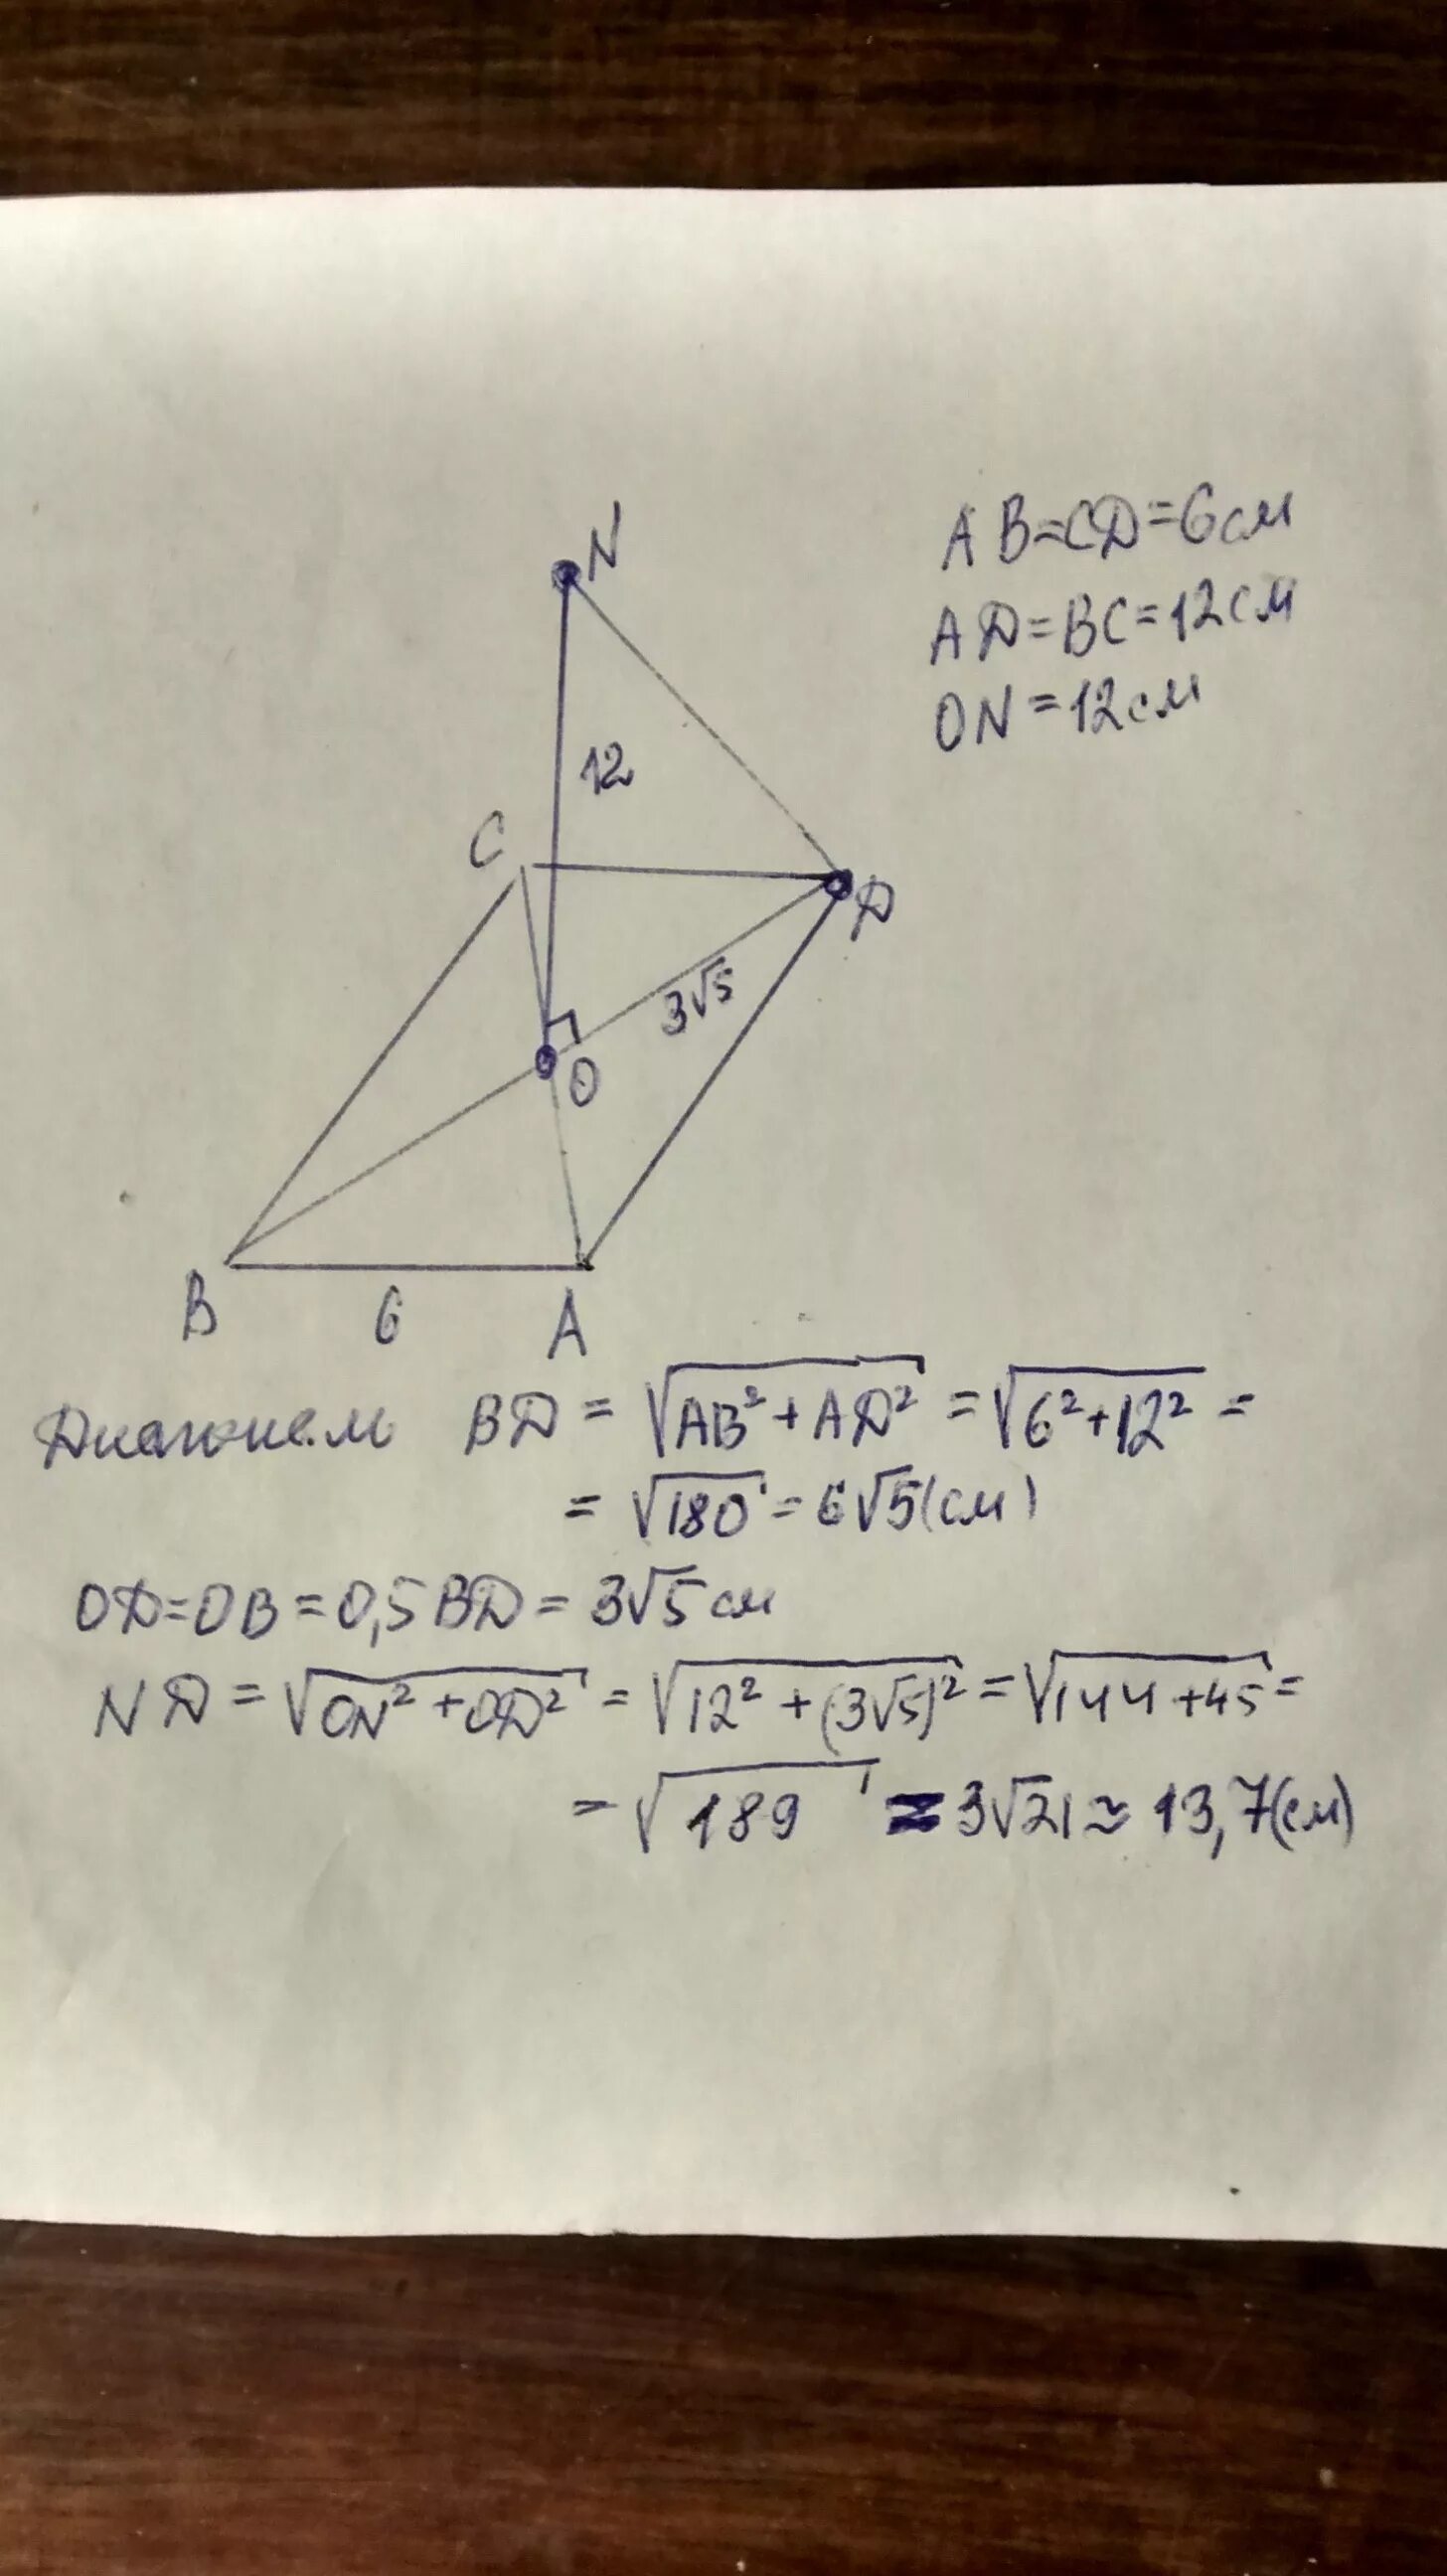 N
AB=CD=6см
AD=BC=12см
ON=12см
12
C
D
3√5
O
B 6 A
Диагонель BD = √AB²+AD² = √6²+12² =
= √180 = 6√5(см)
OD=OB=0,5BD=3√5см
ND = √ON²+OD² = √12²+(3√5)² = √144+45 =
= √189 = 3√21 ≈ 13,7(см)